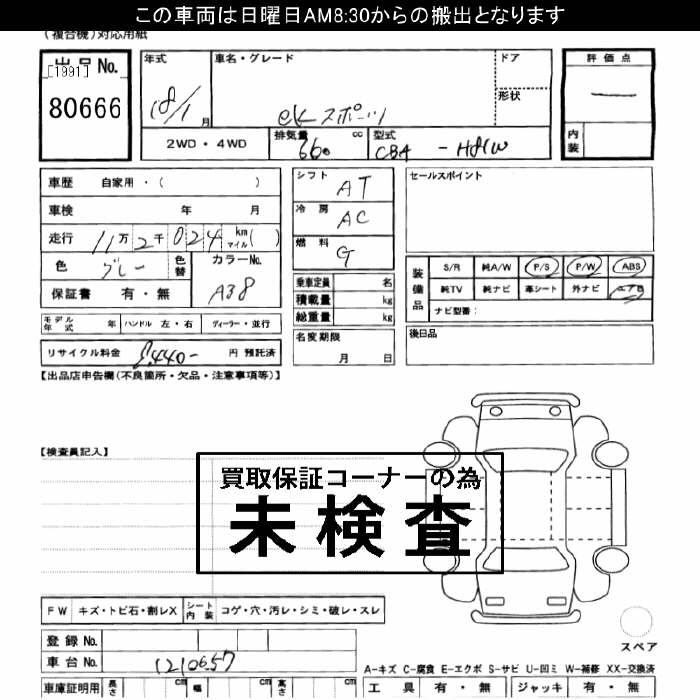 この車両は日曜日AM8:30からの搬出となります
(複合機)対応用紙
出品No.
[1991]
80666
年式
18/1
月
車名・グレード
eKスポーツ
ドア
形状
評価点
内装
2WD・4WD
排気量
660
cc
型式
CBA-H81W
車歴 自家用・( )
車検 年 月
走行 11万2千024 km マイル( )
色 グレー 色替 カラーNo.
A38
保証書 有・無
シフト AT
冷房 AC
燃料 G
乗車定員 名
積載量 kg
総重量 kg
セールスポイント
装備品
S/R 純A/W P/S P/W ABS
純TV 純ナビ 革シート 外ナビ
ナビ型番:
モデル年式 年 ハンドル 左・右 ディーラー・並行
名変期限
月 日
後日品
リサイクル料金 8,440- 円 預託済
【出品店申告欄(不良箇所・欠品・注意事項等)】
【検査員記入】
買取保証コーナーの為
未検査
FW キズ・トビ石・割レX シート内装 コゲ・穴・汚レ・シミ・破レ・スレ
スペア
登録No.
車台No. 1210657
A-キズ C-腐食 E-エクボ S-サビ U-凹ミ W-補修 XX-交換済
車庫証明用 長さ cm 幅 cm 高さ cm
工具 有・無 ジャッキ 有・無